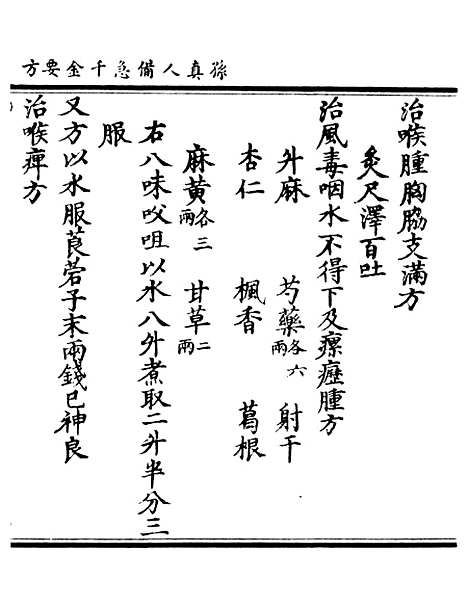 孫真人備急千金要方
治喉腫胸脇支滿方
灸尺澤百壯
治風毒咽水不得下及瘰癧腫方
升麻　芍藥各六兩　射干
杏仁　楓香　葛根
麻黃各三兩　甘草二兩
右八味㕮咀以水八升煮取二升半分三
服
又方以水服莨菪子末兩錢匕神良
治喉痺方